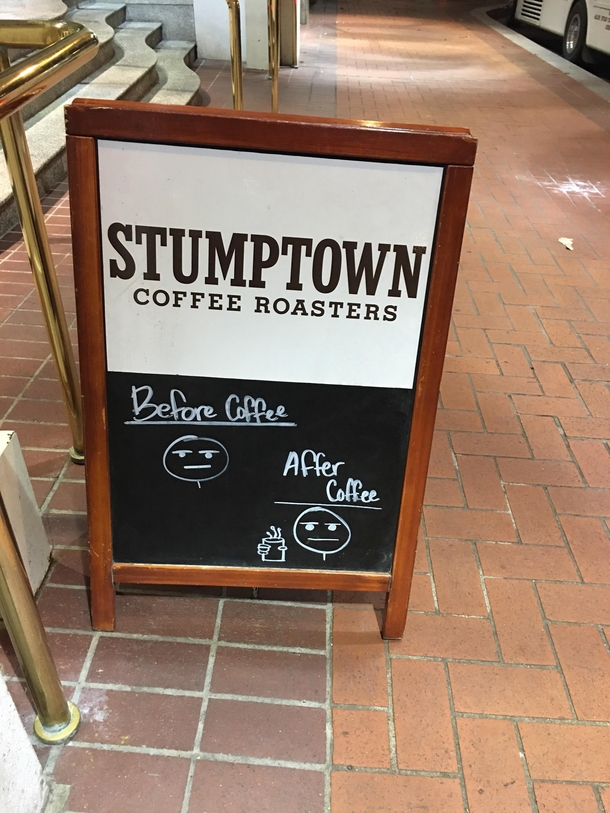 STUMPTOWN
COFFEE ROASTERS
Before Coffee
After
Coffee